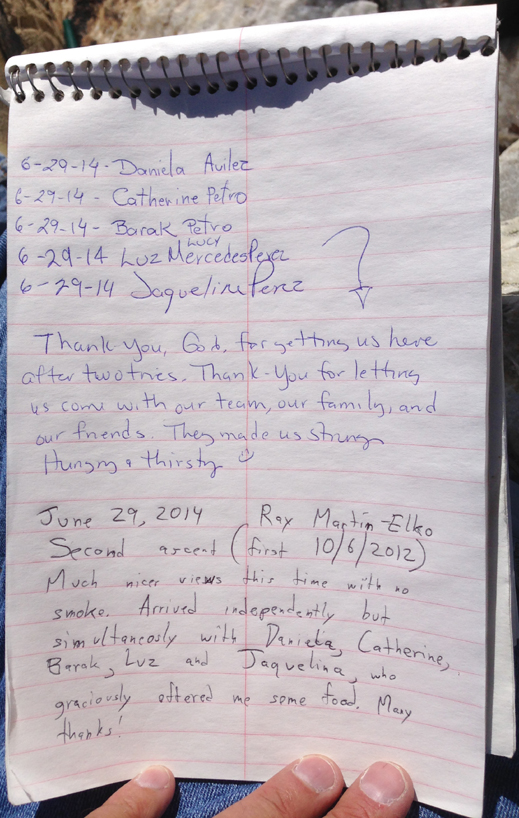 6-29-14- Daniela Avilez
6-29-14 - Catherine Petro
6-29-14- Barak Petro
LUCY
6-29-14 Luz Mercedes Perez
6-29-14 Jaqueline Perez
Thank-You, God, for getting us here
after two tries. Thank-You for letting
us come with our team, our family, and
our friends. They made us strong
Hungry & thirsty
June 29, 2014 Ray Martin - Elko
Second ascent (first 10/6/2012)
Much nicer views this time with no
smoke. Arrived independently but
simultaneosly with Daniela, Catherine,
Barak, Luz and Jaquelina, who
graciously offered me some food. Many
thanks!